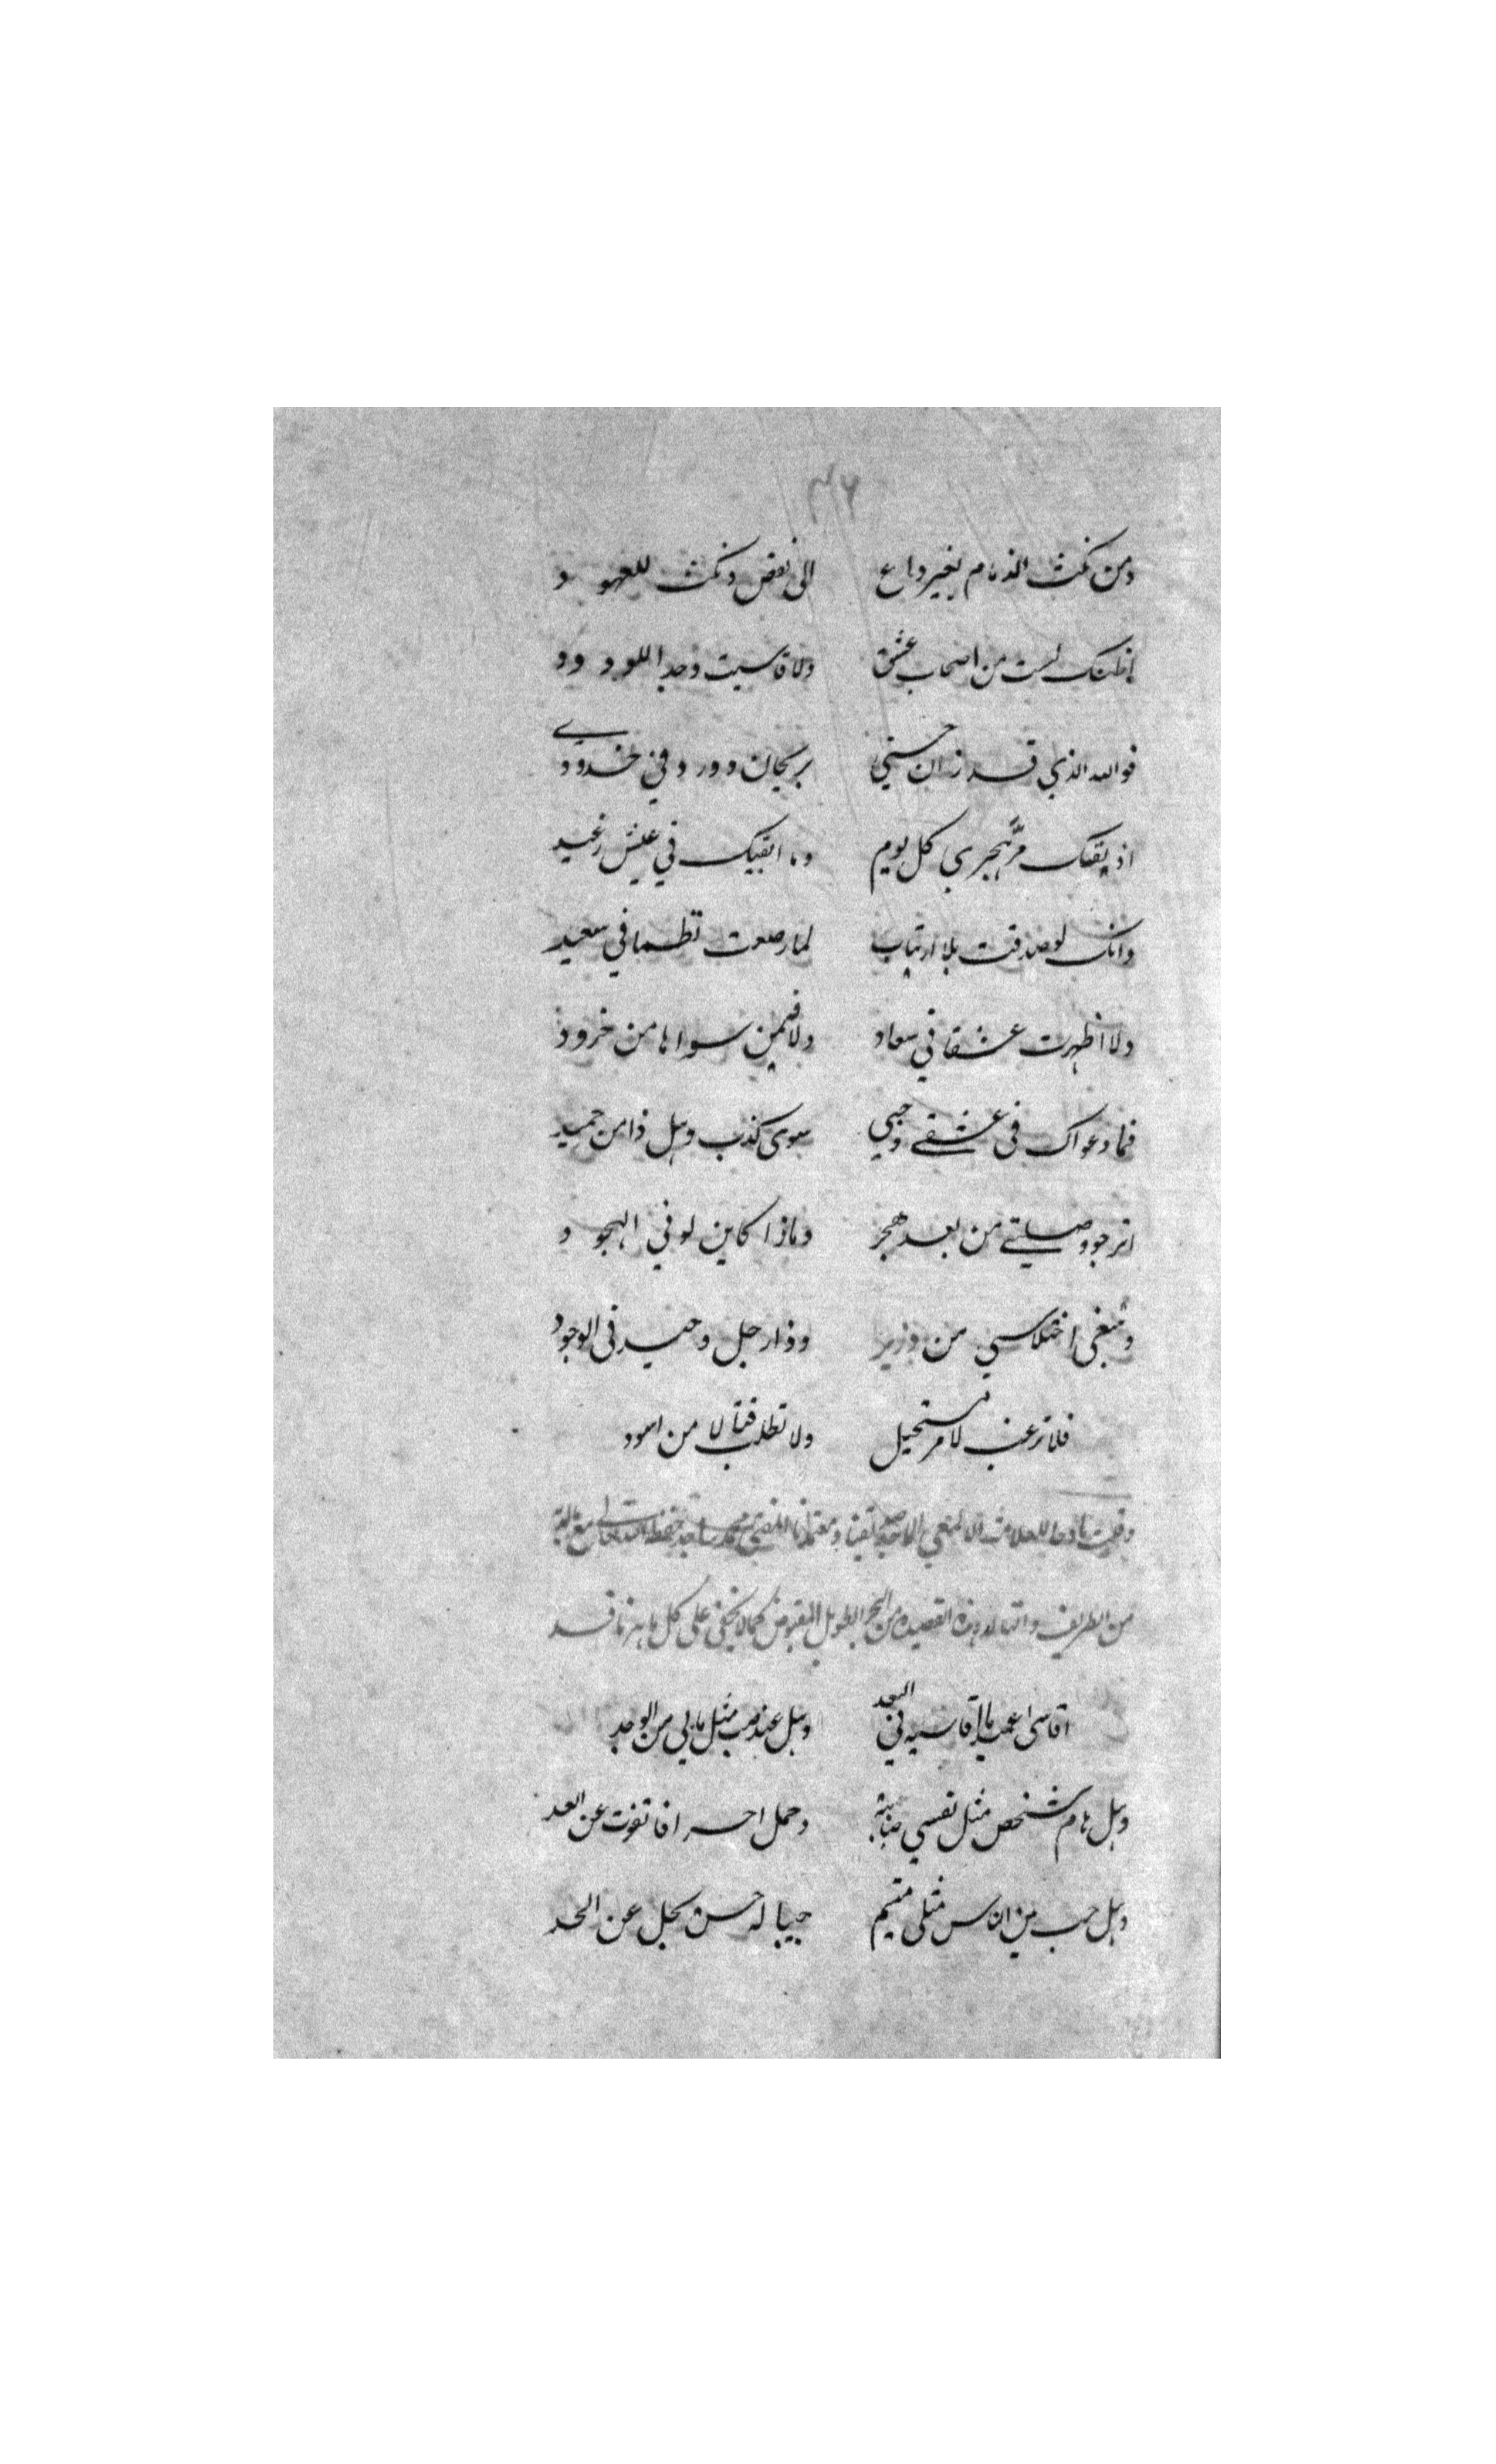 ٣٦
ومن نكث الذمام بغير داع الى نقض ونكث للعهود
اظنك لست من اصحاب عشق ولا قاسيت وجد اللودود
فوالله الذي قد زان حسني بريحان وورد في خدودي
اذيقنك مرّ هجري كل يوم وما ابقيك في عيش رغيد
وانك لو صدقت بلا ارتياب لما رصعت نظما في سعيد
ولا اظهرت عشقا في سعاد ولا فيمن سواها من خرود
فما دعواك في عشقي وحبي سوى كذب وهل ذا من حميد
اترجو وصلتي من بعد هجر وماذا كاين لو في الهجود
وتبغي اختلاسي من وزير وذا رجل وحيد في الوجود
فلا ترغب لامر مستحيل ولا تطلب قتالا من اسود
وقلت مادحا للعلامة الالمعي محمد حفظه الله تعالى مع
من الطريف والتالد وهذه القصيدة من البحر الطويل المقبوض كما لا يخفى على كل ماهر ناقد
اقاسى عميد ما اقاسيه في البعد وهل عند صب مثل ما بي من الوجد
وهل هام شخص مثل نفسي صبابة وحمل احر افا تفوت عن العد
وهل حب من الناس مثلي متيم حبيبا له حسن يجل عن الحد